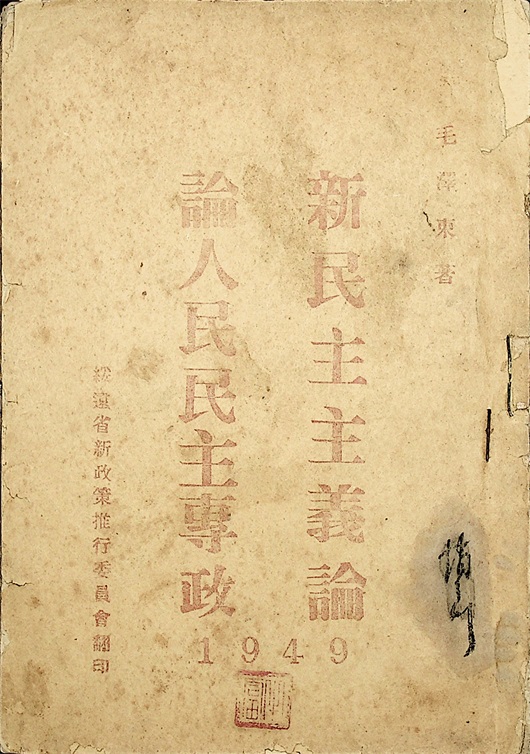 毛澤東著
新民主主義論
論人民民主專政
綏遠省新政策推行委員會翻印
1949